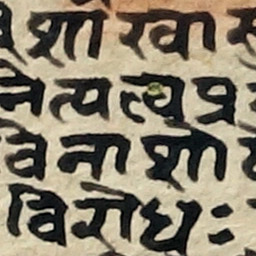 शो रवा
नित्यत्वप्र
विनाशो
विरोधः